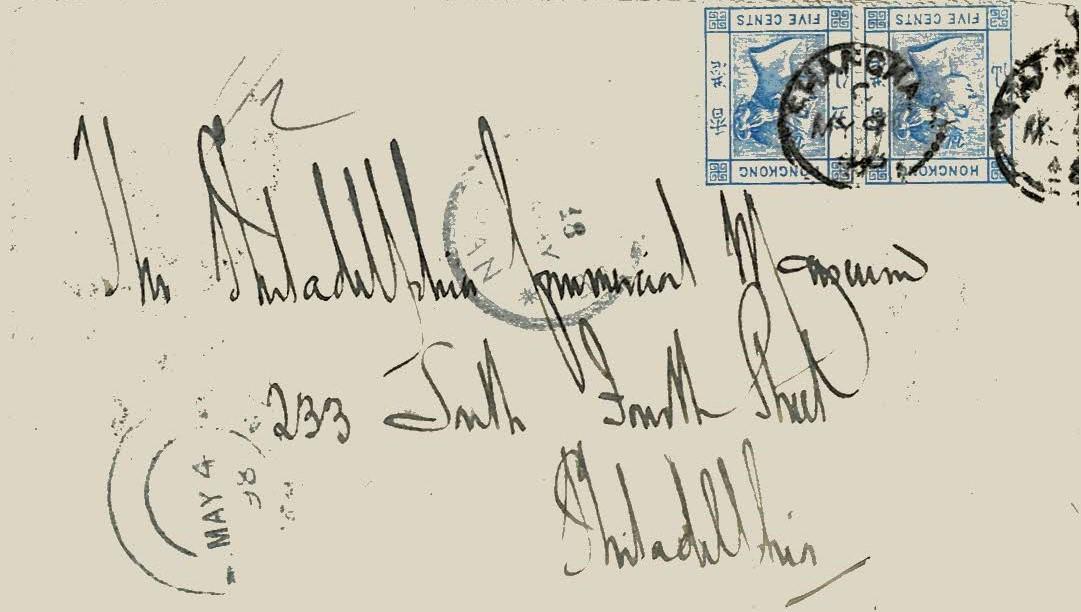 FIVE CENTS FIVE CENTS
HONGKONG HONGKONG
SHANGHAI
The Philadelphia Commercial Museum
233 South Fourth Street
Philadelphia
MAY 4
98
18